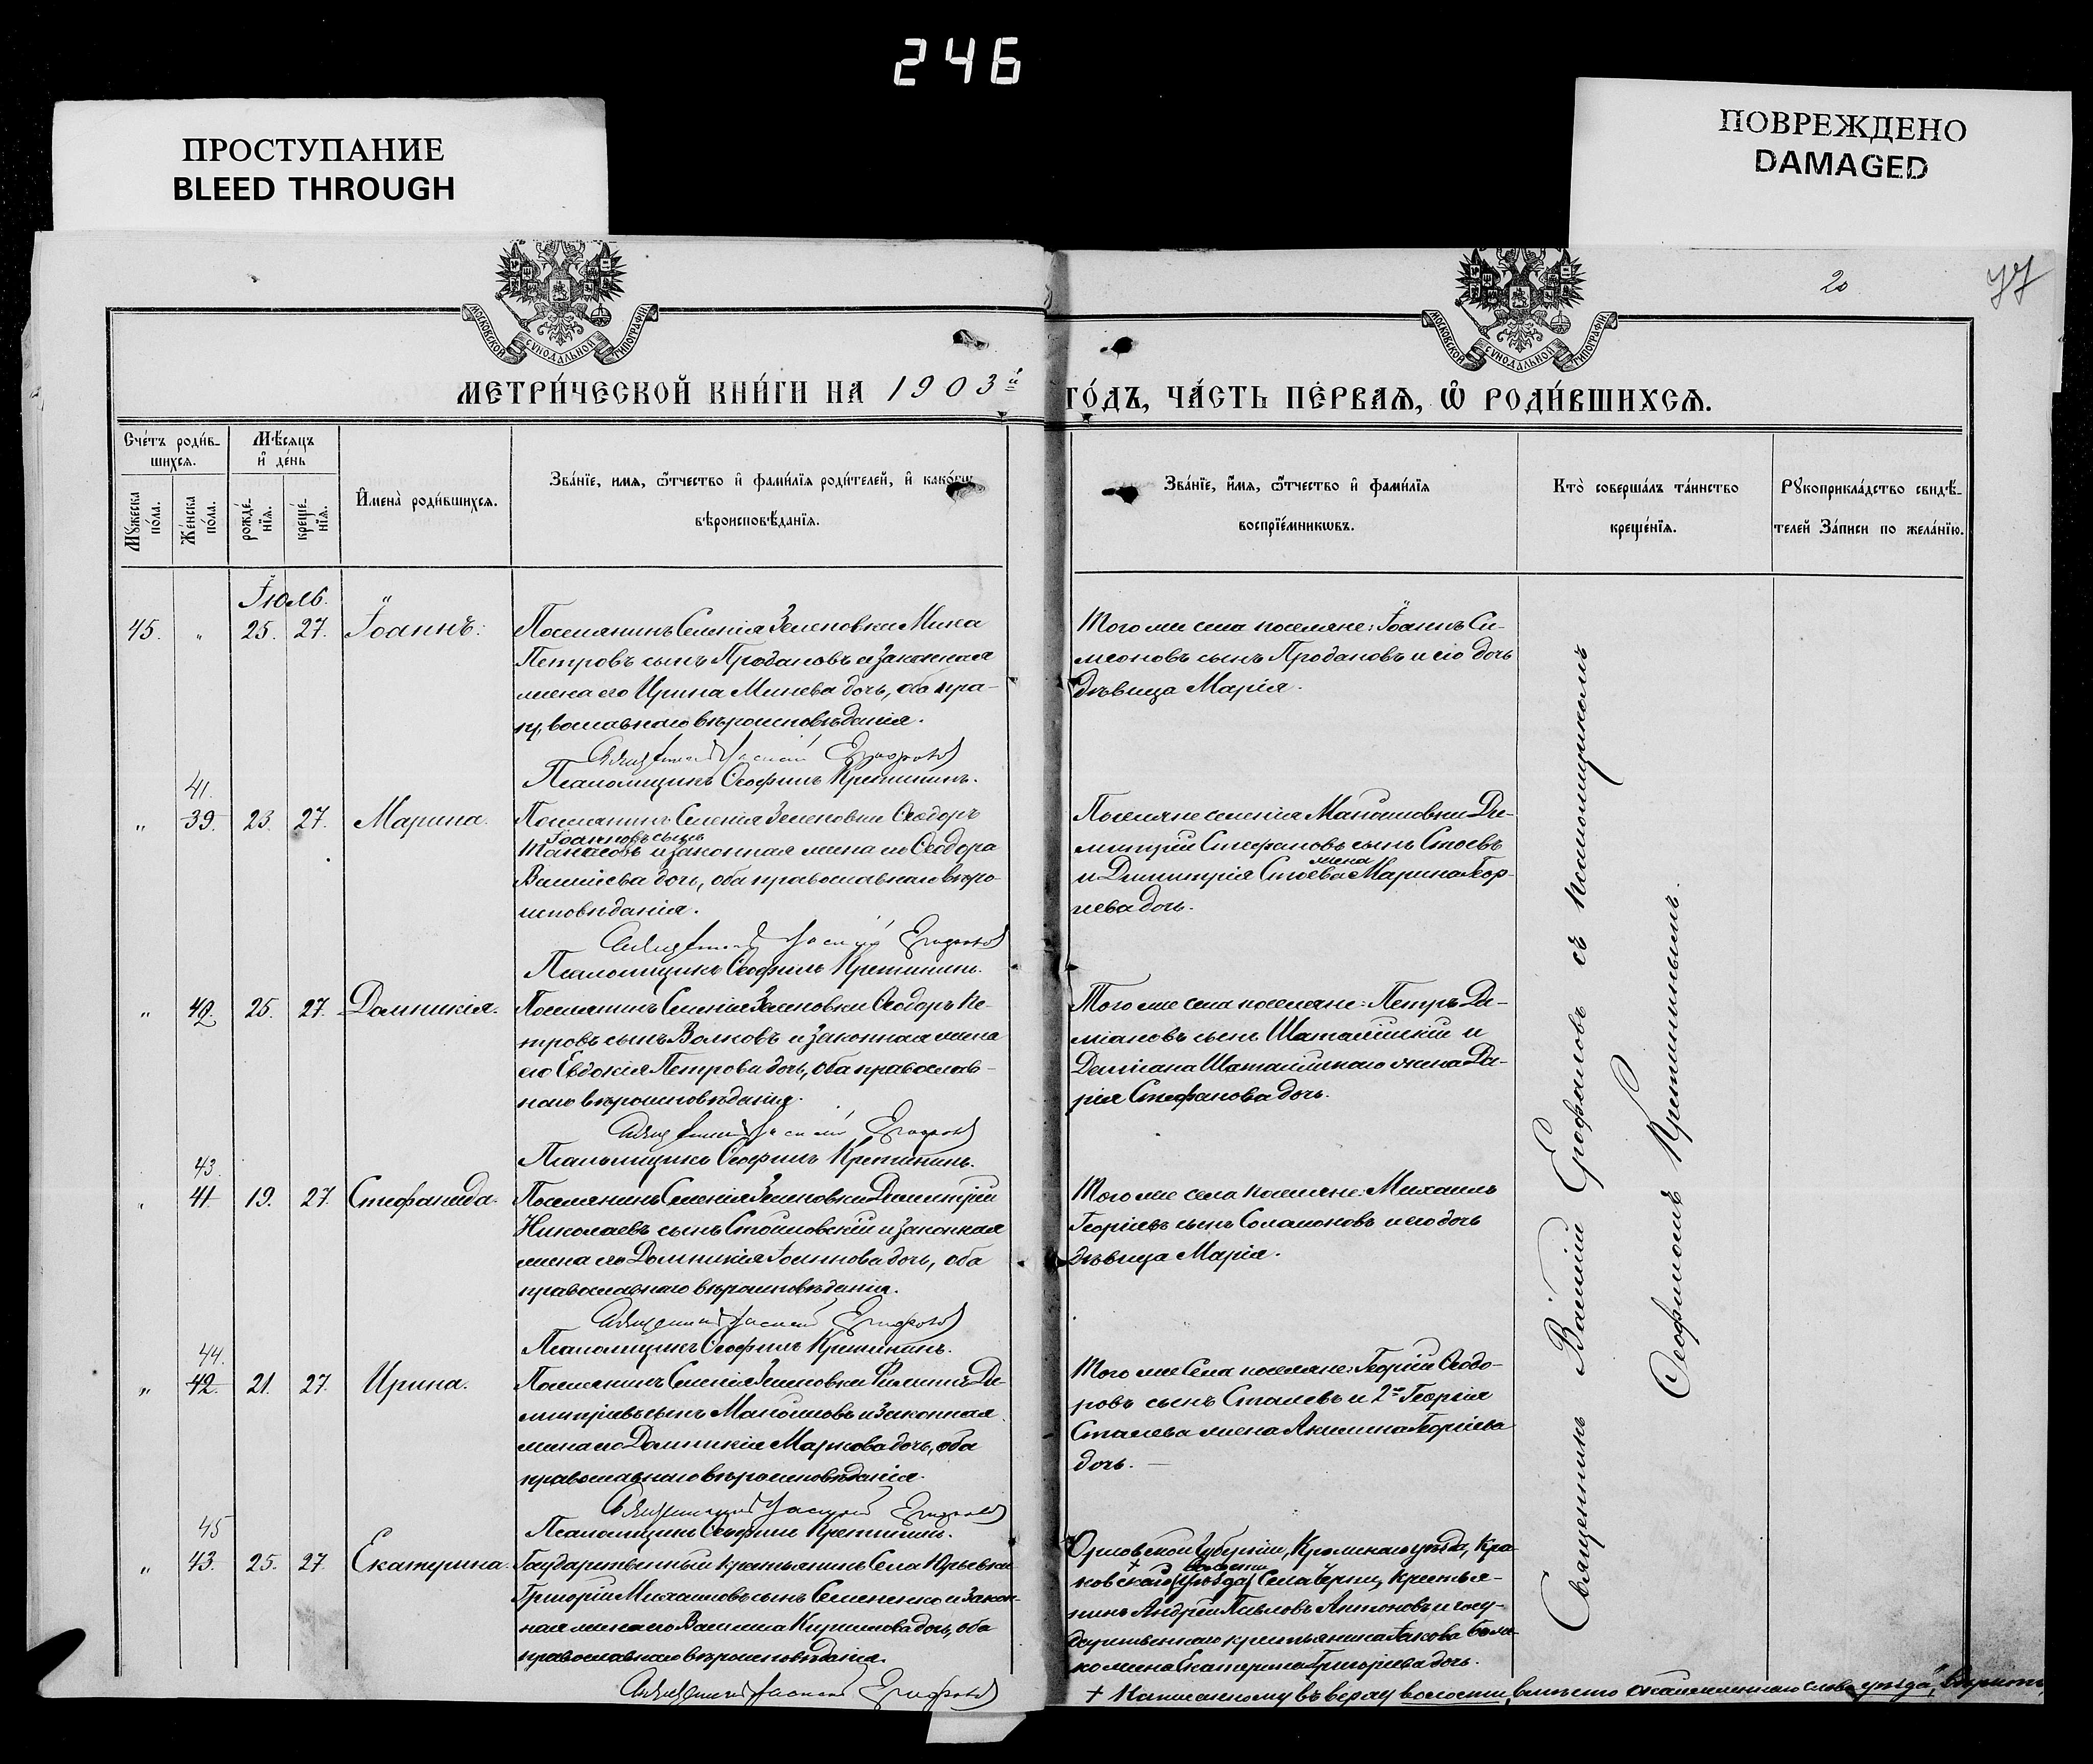 246
ПРОСТУПАНИЕ
BLEED THROUGH
ПОВРЕЖДЕНО
DAMAGED
МОСКОВСКОЙ СУНОДАЛЬНОЙ ТИПОГРАФІИ
МОСКОВСКОЙ СУНОДАЛЬНОЙ ТИПОГРАФІИ
20
77
МЕТРИ́ЧЕСКОЙ КНИ́ГИ НА 1903й
ГО́ДЪ, ЧА́СТЬ ПЕ́РВАѦ, Ѡ РОДИ́ВШИХСѦ.
Сче́тъ роди́в-
шихсѧ.
Мꙋжеска по́ла.
Же́нска по́ла.
Мѣ́сѧцъ
и҆ де́нь
рожде́-
нїѧ.
креще́-
нїѧ.
И҆мена̀ роди́вшихсѧ.
Зва́нїе, имѧ, ѻ҆́тчество и҆ фами́лїѧ роди́телей, и҆ како́гѡ
вѣроисповѣ́данїѧ.
Зва́нїе, и҆́мѧ, ѻ҆́тчество и҆ фами́лїѧ
воспрїе́мникѡвъ.
Кто̀ соверша́лъ та́инство
креще́нїѧ.
Рꙋкоприкла́дство свидѣ́-
телей За́писи по жела́нїю.
Іюль.
45. " 25. 27. Іоаннъ.
Поселянинъ Селенія Зеленовки Мина
Петровъ сынъ Продановъ и законная
жена его Ирина Минева дочь, оба пра-
вославнаго вѣроисповѣданія.
Священникъ Василій Ерофаловъ
Псаломщикъ Ѳеофилъ Кретининъ.
Того же села поселяне: Іоаннъ Си-
меоновъ сынъ Продановъ и его дочь
дѣвица Марія.
41.
" 39. 23. 27. Марина.
Поселянинъ Селенія Зеленовки Ѳеодоръ
Іоанновъ сынъ
Танасовъ и законная жена его Ѳеодора
Василіева дочь, оба православнаго вѣро-
исповѣданія.
Священникъ Василій Ерофаловъ
Псаломщикъ Ѳеофилъ Кретининъ.
Поселяне селенія Манойловки Ди-
митрій Стефановъ сынъ Стоевъ
жена
и Димитрія Стоева Марина Геор-
гіева дочь.
" 42. 25. 27. Домникія.
Поселянинъ Селенія Зеленовки Ѳеодоръ Пе-
тровъ сынъ Волковъ и законная жена
его Евдокія Петрова дочь, оба православ-
наго вѣроисповѣданія.
Священникъ Василій Ерофаловъ
Псаломщикъ Ѳеофилъ Кретининъ.
Того же села поселяне: Петръ Да-
міановъ сынъ и
жена Да-
рія Стефанова дочь.
43.
" 41. 19. 27. Стефанида.
Поселянинъ Селенія Зеленовки Димитрій
Николаевъ сынъ Стойловскій и законная
жена его Домникія Іоаннова дочь, оба
православнаго вѣроисповѣданія.
Священникъ Василій Ерофаловъ
Псаломщикъ Ѳеофилъ Кретининъ.
Того же села поселяне: Михаилъ
Георгіевъ сынъ Соломоновъ и его дочь
дѣвица Марія.
44.
" 42. 21. 27. Ирина.
Поселянинъ Селенія Зеленовки Филиппъ Ди-
митріевъ сынъ Манойловъ и законная
жена его Домникія Маркова дочь, оба
православнаго вѣроисповѣданія.
Священникъ Василій Ерофаловъ
Псаломщикъ Ѳеофилъ Кретининъ.
Того же Села поселяне: Георгій Ѳеодо-
ровъ сынъ Сталевъ и 2е Георгія
Сталева жена Акилина Георгіева
дочь. —
45
" 43. 25. 27. Екатерина.
Государственный крестьянинъ Села Юрьевки
Григорій Михаиловъ сынъ Семененко и закон-
ная жена его Василиса Кириллова дочь, оба
православнаго вѣроисповѣданія.
Священникъ Василій Ерофаловъ
Орловской Губерніи, Кромскаго уѣзда,
волости
(уѣзда) Села крестья-
нинъ Андрей Павловъ Антоновъ и госу-
дарственнаго крестьянина Іакова
жена Екатерина Григоріева дочь.
+ Написанному въ верху волости, вмѣсто слова "уѣзда", вѣрить.
Священникъ Василій Ерофаловъ съ псаломщикомъ
Ѳеофиломъ Кретининымъ.